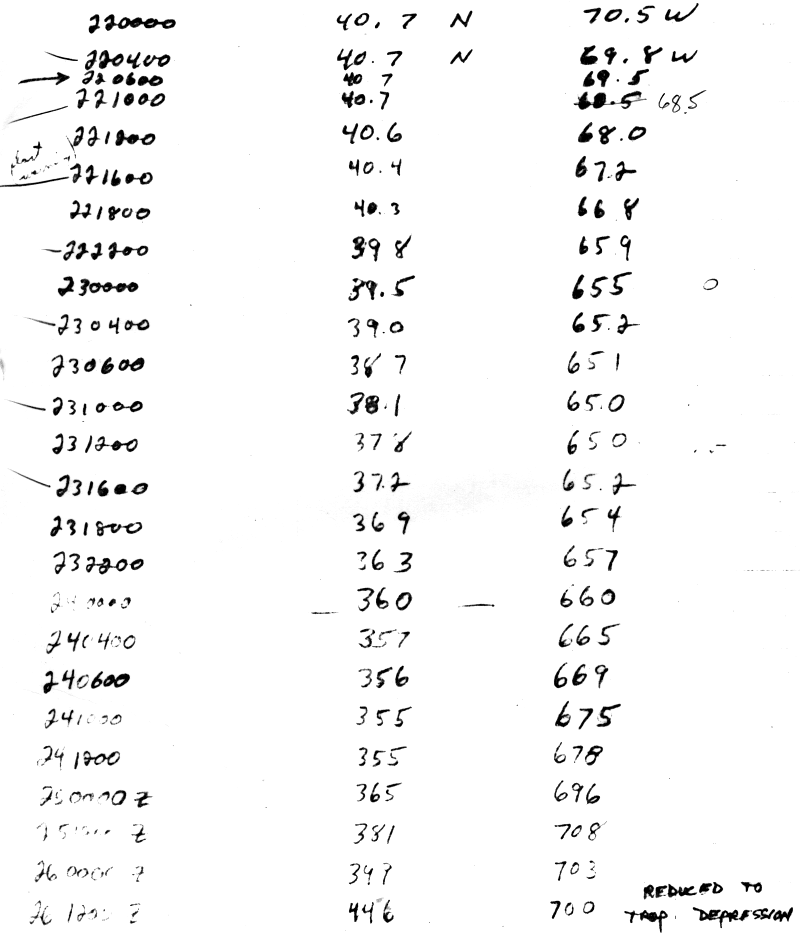 220000 40.7 N 70.5 W
220400 40.7 N 69.8 W
220600 40 7 69.5
221000 40.7 68.5 68.5
221200 40.6 68.0
221600 40.4 67.2
221800 40.3 66 8
222200 39 8 65.9
230000 39.5 655 0
230400 39.0 65.2
230600 38 7 65 1
231000 38.1 65.0
231200 37 8 65 0
231600 37.2 65.2
231800 36 9 65 4
232200 36 3 657
240000 360 660
240400 357 665
240600 356 669
241000 355 675
241200 355 678
250000 Z 365 696
251200 Z 381 708
260000 Z 703
REDUCED TO
261200 Z 446 700 TROP. DEPRESSION